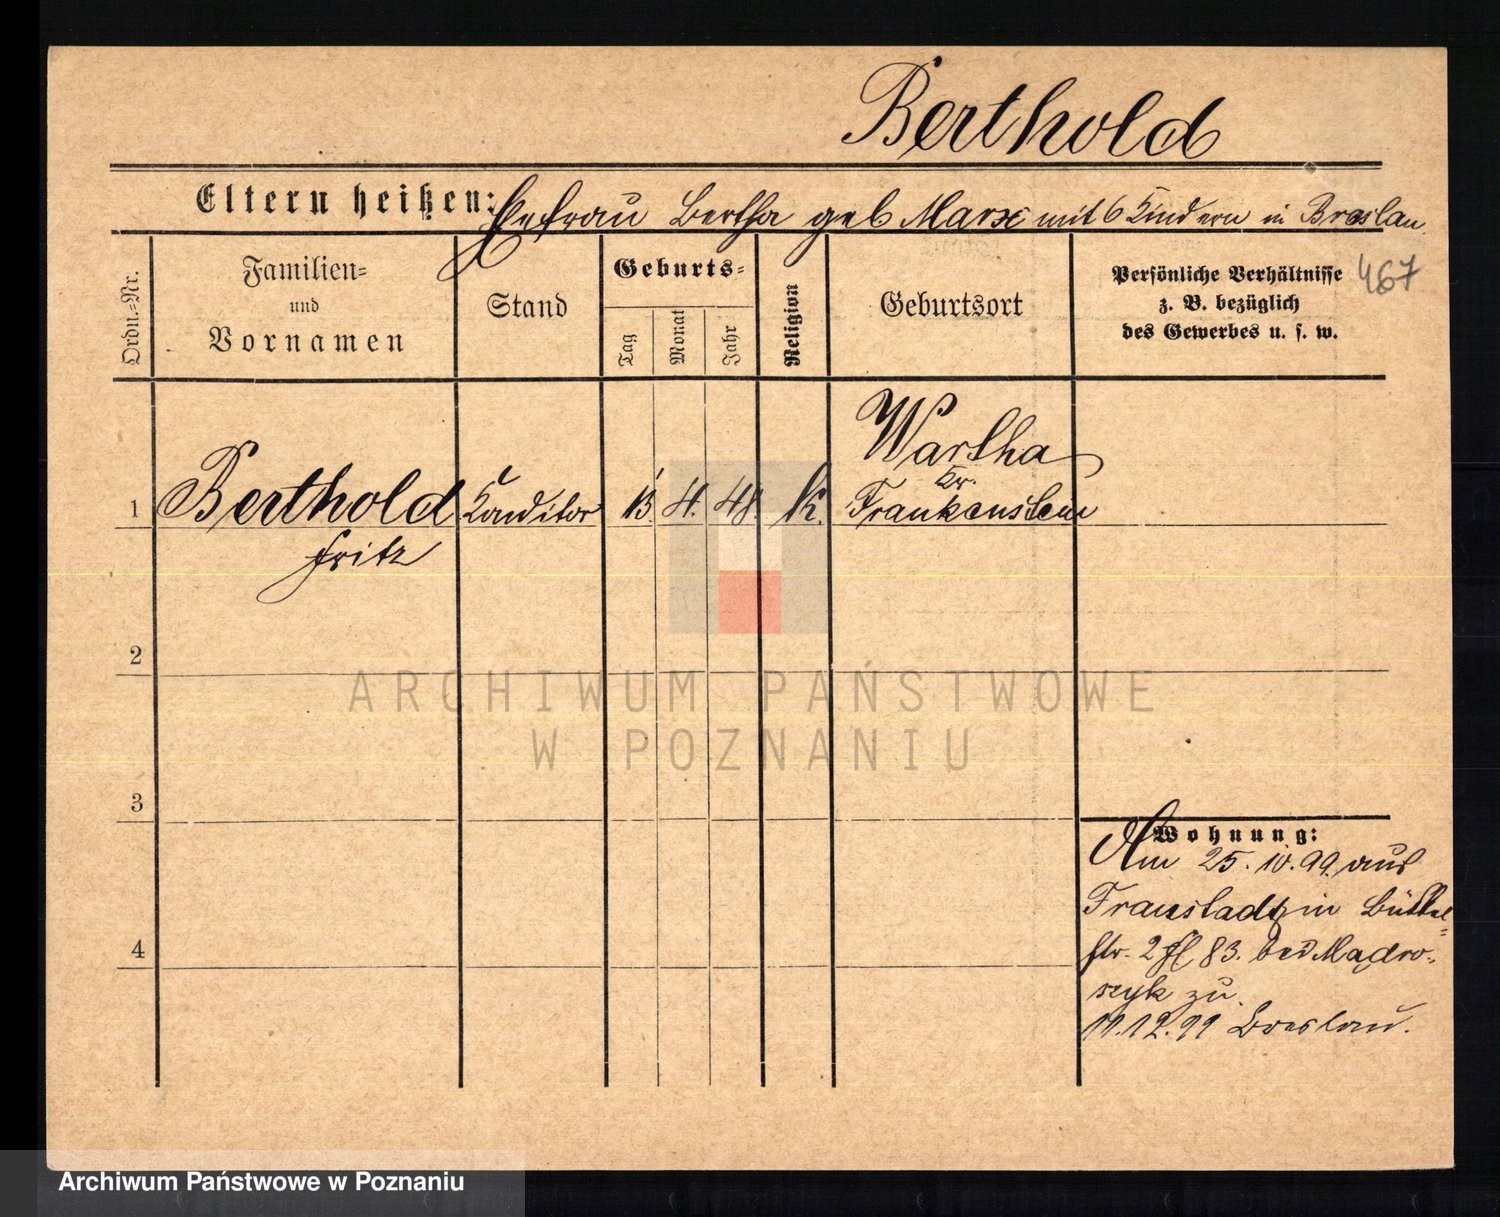 Berthold
Eltern heißen: Ehefrau Bertha geb Marx mit 6 Kindern in Breslau.
467
Ordn.=Nr.
Familien=
und
Vornamen
Stand
Geburts=
Tag
Monat
Jahr
Religion
Geburtsort
Persönliche Verhältnisse
z. B. bezüglich
des Gewerbes u. s. w.
1
Berthold
Fritz
Conditor
13.
4.
48.
K.
Wartha
Kr.
Frankenstein
2
ARCHIWUM PAŃSTWOWE
W POZNANIU
3
4
Wohnung:
Am 25.10.99. aus
Fraustadt in Büttel=
str. 2 83. bei Mądro-
szyk zu.
11.12.99 Breslau.
Archiwum Państwowe w Poznaniu